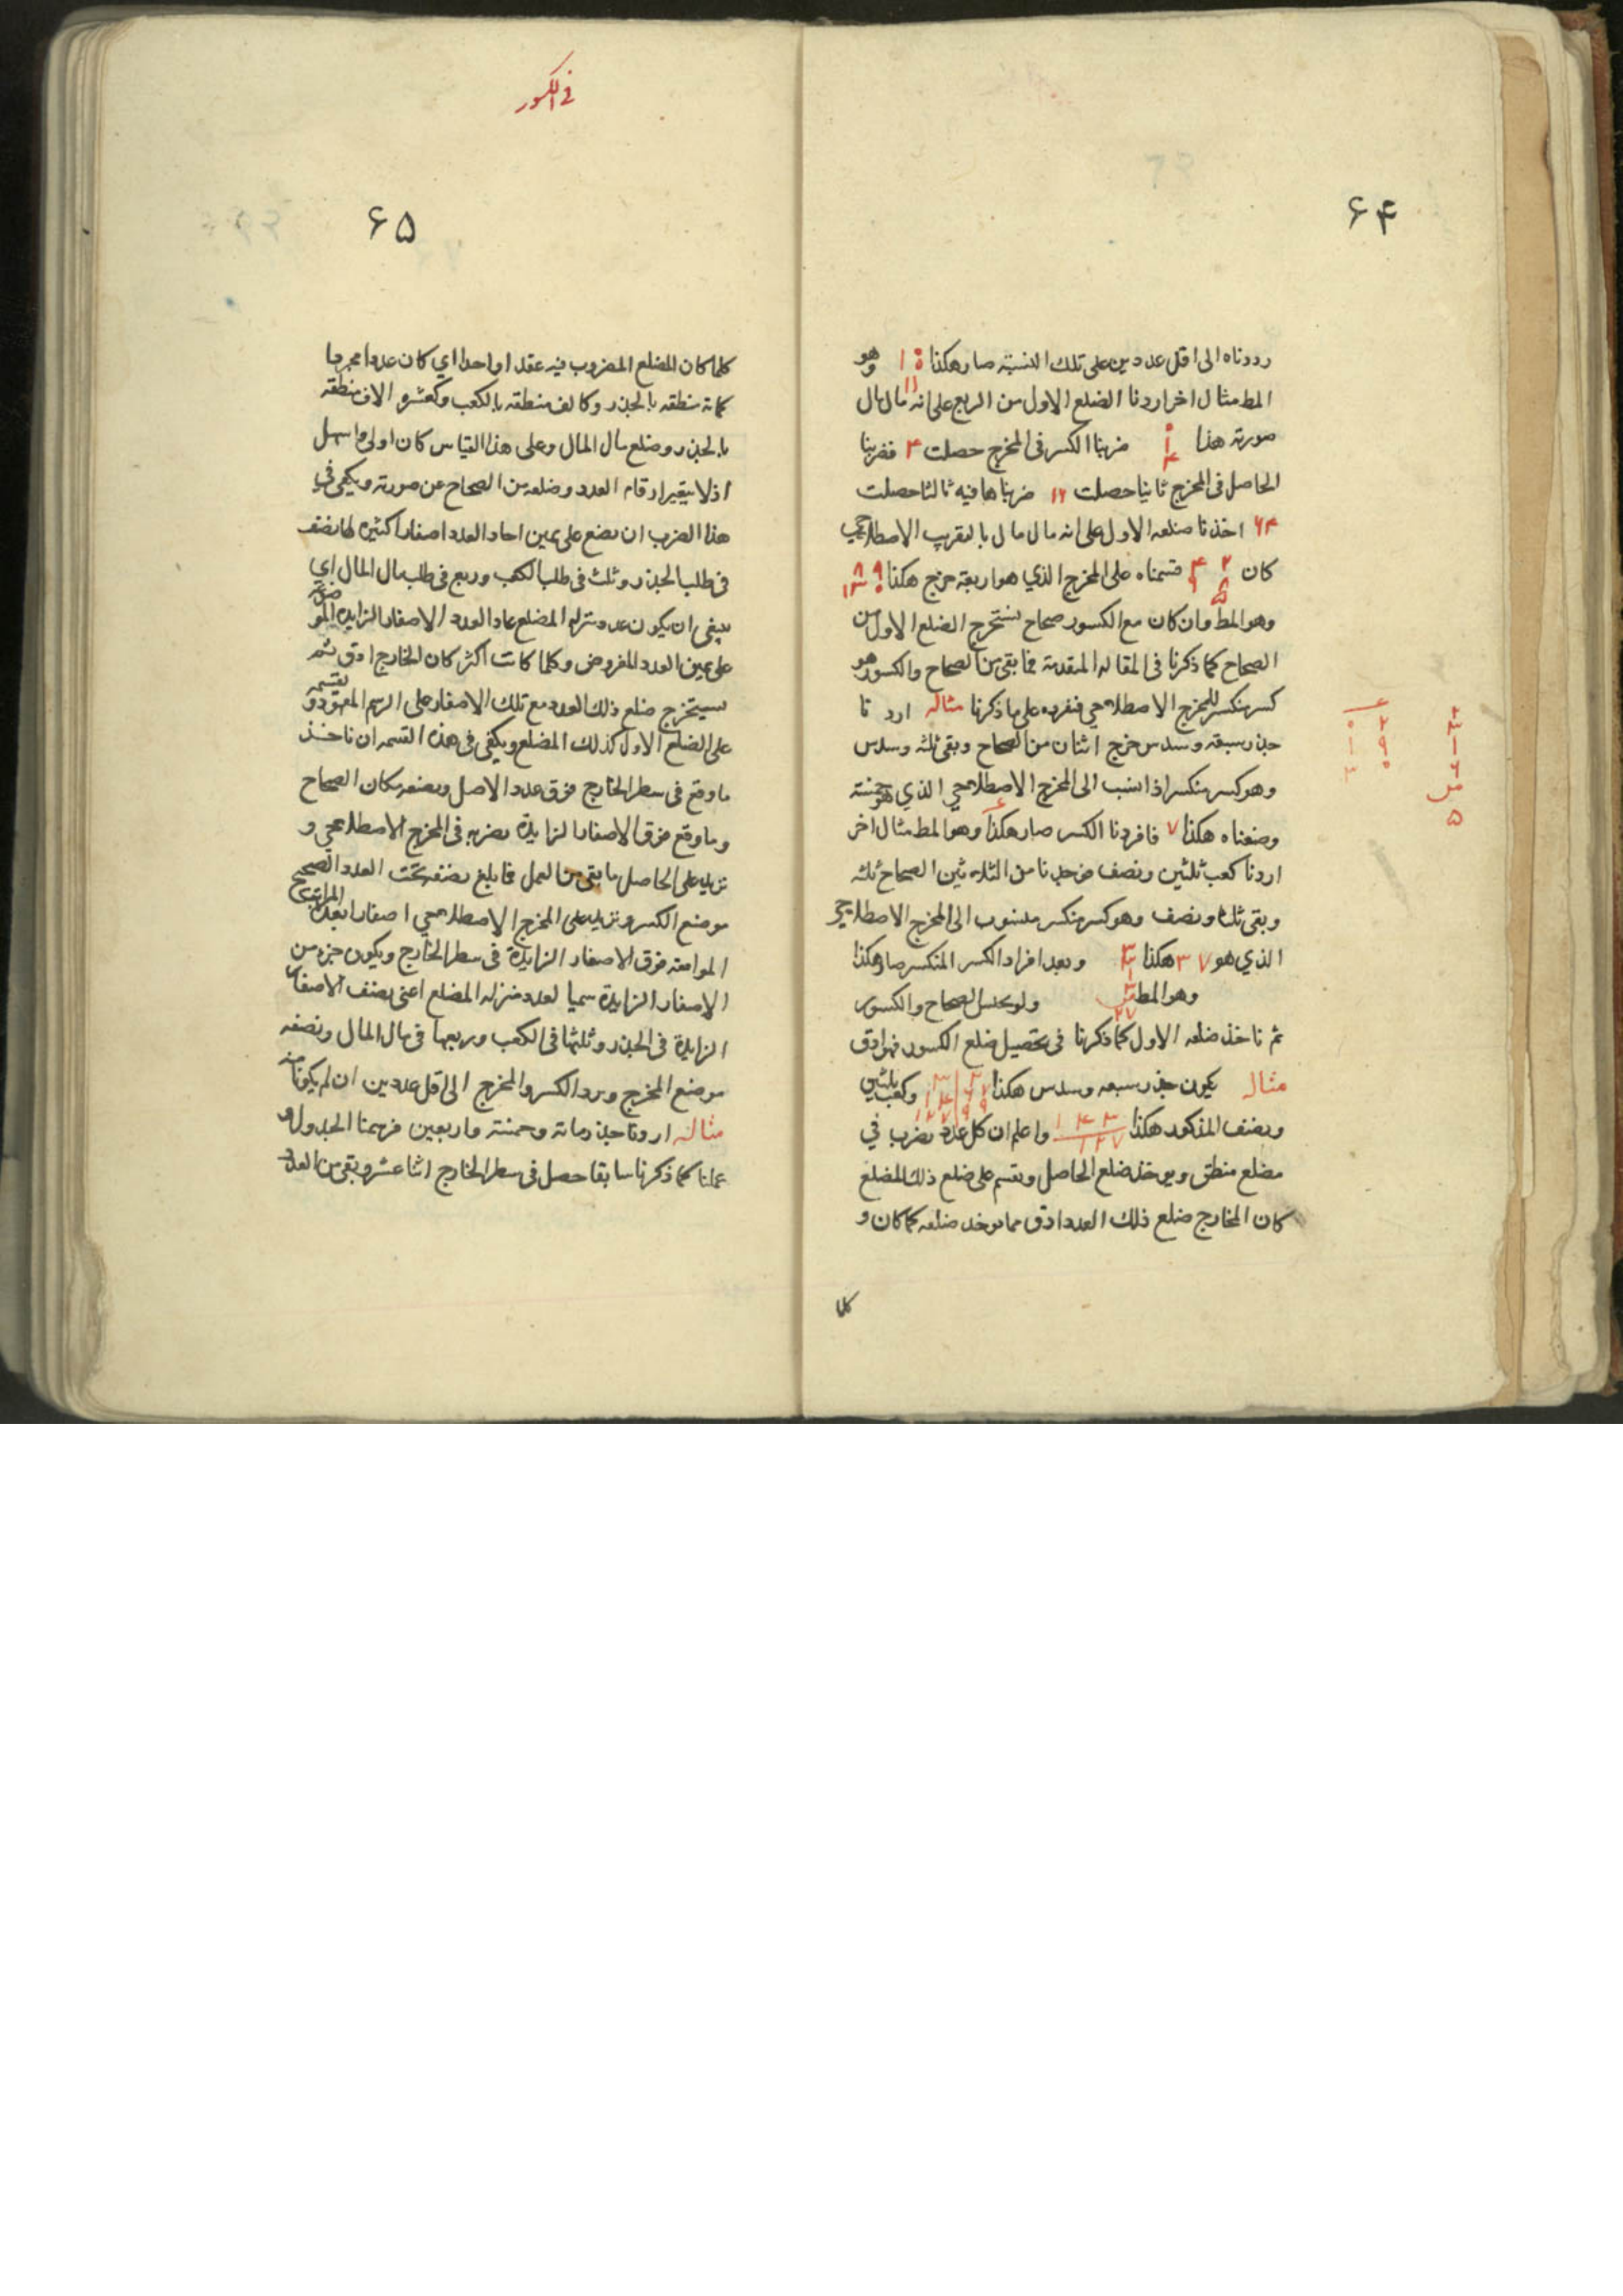 ۶۴
رددناه الى اقل عددين على تلك النسبة صار هكذا وهو
المط مثال اخر اردنا الضلع الاول من الربع على انه مال مال
صورته هذا ضربنا الكسر فى المخرج حصلت ۴ فضربنا
الحاصل فى المخرج ثانيا حصلت ۱۶ ضربناها فيه ثالثا حصلت
۶۴ اخذنا ضلعه الاول على انه مال مال بالتقريب الاصطلاحي
كان قسمناه على المخرج الذي هو اربعة خرج هكذا
وهو المط وان كان مع الكسور صحاح نستخرج الضلع الاول من
الصحاح كما ذكرنا فى المقالة المتقدمة فما بقى من الصحاح والكسور هو
كسر منكسر للمخرج الاصطلاحي فنفرده على ما ذكرنا مثاله اردنا
جذر سبعة وسدس خرج اثنان من الصحاح وبقى ثلثة وسدس
وهو كسر منكسر اذا نسب الى المخرج الاصطلاحي الذي هو خمسة
وضعناه هكذا فافردنا الكسر صار هكذا وهو المط مثال اخر
اردنا كعب ثلثين ونصف من الصحاح ثلثه
وبقى ثلثة ونصف وهو كسر منكسر منسوب الى المخرج الاصطلاحي
الذي هو ۳۷ هكذا وبعد افراد الكسر المنكسر صار هكذا
وهو المط ولو نجنس الصحاح والكسور
ثم ناخذ ضلعه الاول كما ذكرنا فى تحصيل ضلع الكسور فهو ادق
مثاله يكون جذر سبعه وسدس هكذا وكعب ثلثين
ونصف المذكور هكذا واعلم ان كل عدد يضرب في
مضلع منطق ويوخذ ضلع الحاصل ويقسم على ضلع ذلك المضلع
كان الخارج ضلع ذلك العدد ادق مما يوخذ ضلعه كما كان و
كلما
فى الكسور
۶۵
كلما كان المضلع المضروب فيه عقدا واحدا اي كان عددا مجردا
كمائة منطقه بالجذر وكالف منطقه بالكعب وكعشرة الاف منطقه
بالجذر وضلع مال المال وعلى هذا القياس كان اولى واسهل
اذ لا يتغير ارقام العدد وضلعه من الصحاح عن صورته ويكفى فى
هذا الضرب ان نضع على يمين احاد العدد اصفارا كثيرة لها نصف
فى طلب الجذر وثلث فى طلب الكعب وربع فى طلب مال المال اي
ينبغى ان يكون عدد منزلة المضلع عاد العدد الاصفار الزايدة الموضوعة
على يمين العدد المفروض وكلما كانت اكثر كان الخارج ادق ثم
نستخرج ضلع ذلك العدد مع تلك الاصفار على الرسم المعهود ونقسمه
على الضلع الاول لذلك المضلع ويكفى فى هذه القسمه ان ناخذ
ما وقع فى سطر الخارج فوق عدد الاصل ونضعه مكان الصحاح
وما وقع فوق الاصفار الزايدة نضربه فى المخرج الاصطلاحي و
نزيد على الحاصل ما بقى من العمل فما بلغ نضعه تحت العدد الصحيح
موضع الكسر ونزيد على المخرج الاصطلاحي اصفارا بعدة المراتب
الواقعه فوق الاصفار الزايدة فى سطر الخارج ويكون جزء من
الاصفار الزايدة سميا لعدد منزلة المضلع اعنى نصف الاصفار
الزايدة فى الجذر وثلثها فى الكعب وربعها فى مال المال ونضعه
موضع المخرج ونرد الكسر والمخرج الى اقل عددين ان لم يكونا
مثاله اردنا جذر مائة وخمسة واربعين فرسمنا الجدول و
عملنا كما ذكرنا سابقا حصل فى سطر الخارج اثنا عشر وبقى من العدد